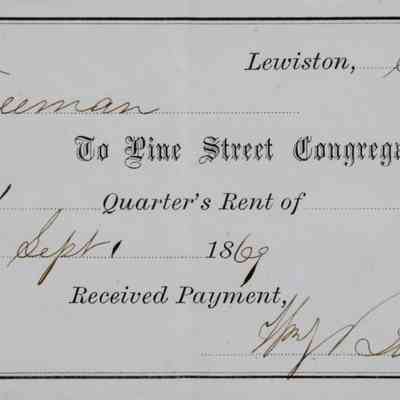 Lewiston,
eeman
To Pine Street Congrega
Quarter's Rent of
Sept 1 1869
Received Payment,
Wm